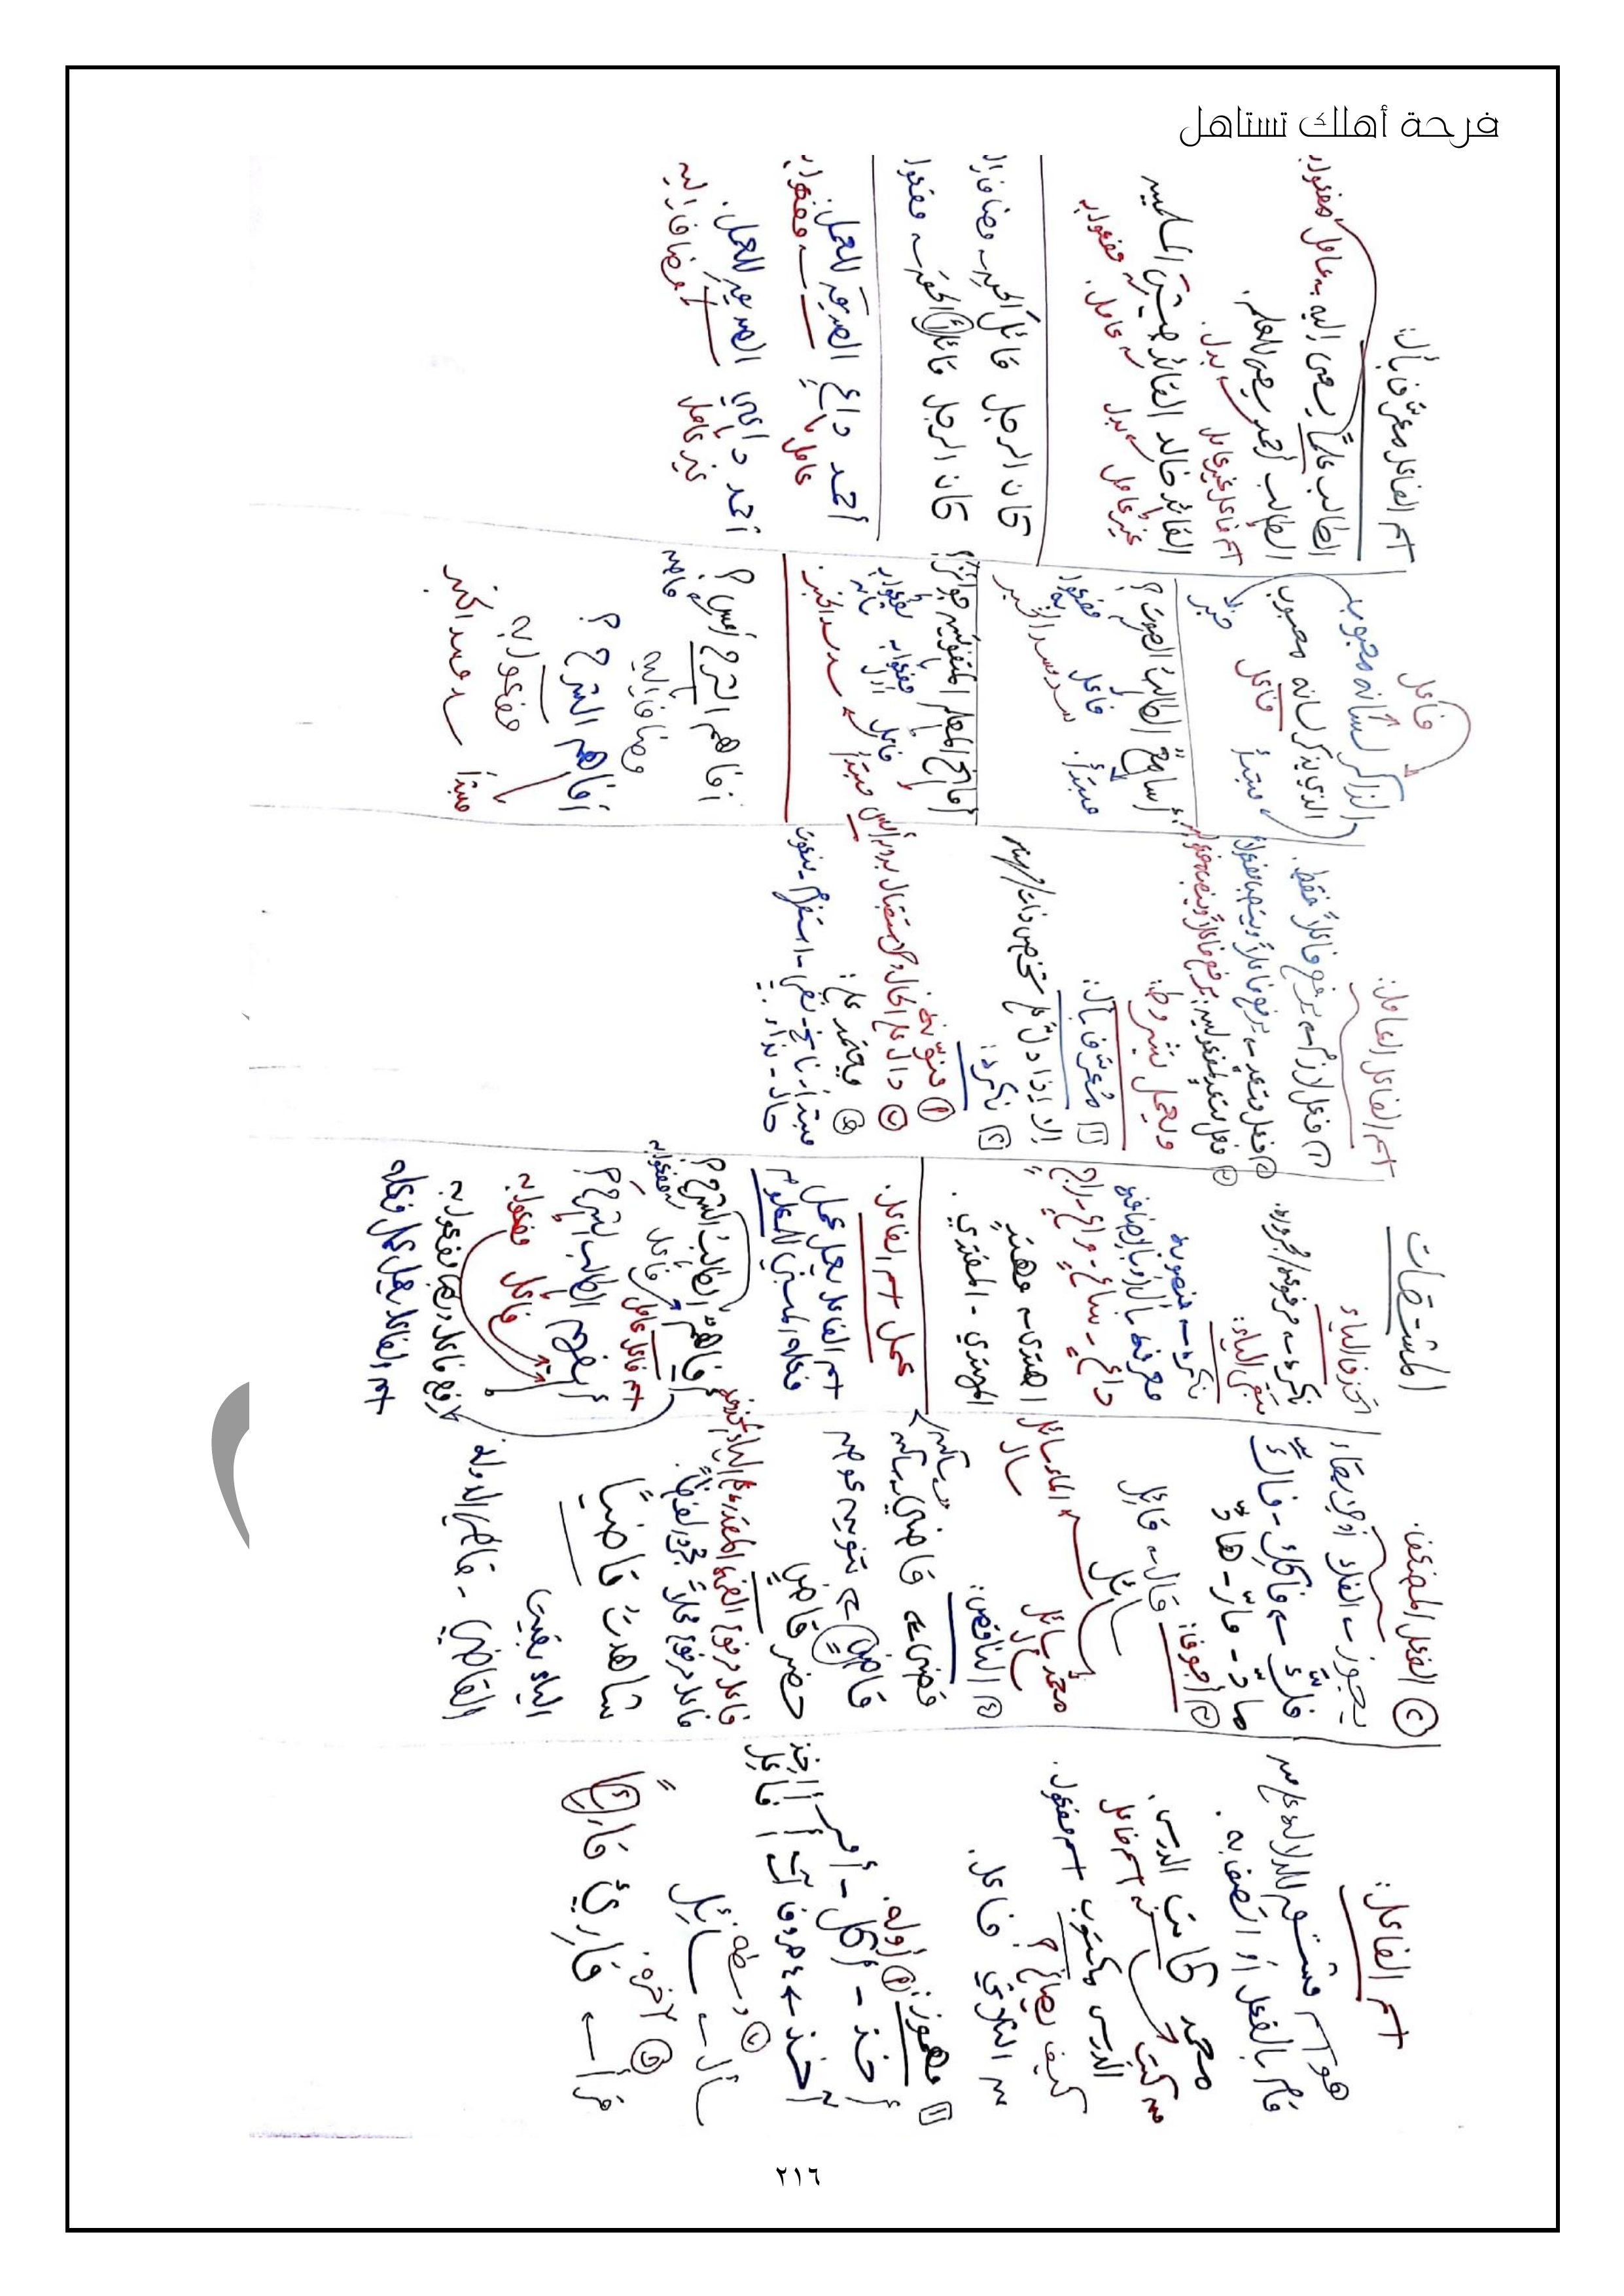 فرحة أهلك تستاهل
المشتقات
اسم الفاعل:
هو اسم مشتق للدلالة على من
قام بالفعل أو اتصف به.
محمد كاتب الدرس.
من كتب اسم فاعل
الدرس مكتوب اسم مفعول.
كيف يصاغ؟
من الثلاثي فاعل.
١ مهموز: ١ أوله.
أخذ - أكل - أمر
أخذ ← آخذ
فاعل
٢ وسطه.
سأل ← سائل
٣ آخره.
قرأ ← قارئ قارئ
٢ الفعل المضعف.
يجوز الفك أو
فكّ ← فاكك - فاكّ
مادّ - مارّ - هادّ
٣ أجوف:
قال ← قائل
سائل
الماء سائل
سال
محمد سائل
سأل
٤ الناقص:
قضى ← قاضي
قاضٍ ← تنوين عوض
حضر قاضٍ
شاهدت قاضياً
الياء بقيت
القاضي - قاضي الدولة.
تحذف الياء
نكرة ← مرفوعة/مجرورة.
تبقى الياء:
نكرة ← منصوبة
معرفة بأل أو بالإضافة
داعٍ - ساعٍ - راعٍ - راجٍ
اهتدى ← مهتدٍ
المهتدي - المفتدي.
عمل اسم الفاعل.
اسم الفاعل يعمل عمل
فعله المبني للمعلوم
أفاهمٌ الطالبُ الشرحَ؟
اسم فاعل عامل فاعل مفعول به
أيفهم الطالب الشرح؟
فاعل مفعول به
اسم الفاعل يعمل عمل فعله
اسم الفاعل العامل:
١ فعل لازم ← يرفع فاعلاً فقط.
٢ فعل متعدٍ ← يرفع فاعلاً وينصب مفعولاً
ويعمل بشروط:
١ مُعرّف بأل:
إلا إذا دلّ على شخص
٢ نكرة:
١ منوّنة
٢ دالّ على الحال والاستقبال بدون أمس
٣ ويعتمد على:
مبتدأ - ناسخ - نفي - استفهام - منعوت
حال - نداء
فاعل
الذاكر لسانه محبوب
الذي يذكر لسانه محبوب
مبتدأ فاعل خبر
أسامعٌ الطالبُ الصوتَ؟
مبتدأ. فاعل مفعول به
سد مسد الخبر
أمانح المعلم المتفوقين جوائز؟
مبتدأ فاعل مفعول به أول مفعول به ثانٍ
سد مسد الخبر.
أفاهم الشرح أمس؟
مضاف إليه
أفاهم الشرح؟
مفعول به
مبتدأ سد مسد الخبر
اسم الفاعل معرّف بأل:
الطالب علماً يسعى إليه ← عامل مفعول به
الطالب أحمد يسعى للعلم.
اسم فاعل غير عامل بدل.
القائد خالد القائد جيش المسلمين
غير عامل بدل عامل. مفعول به
كان الرجل قائل الحق ← مضاف إليه
كان الرجل قائلاً الحق ← مفعول به
أحمد داعٍ الصديقَ للعمل.
عامل مفعول به
أحمد داعي الصديقِ للعمل.
غير عامل مضاف إليه
٢١٦